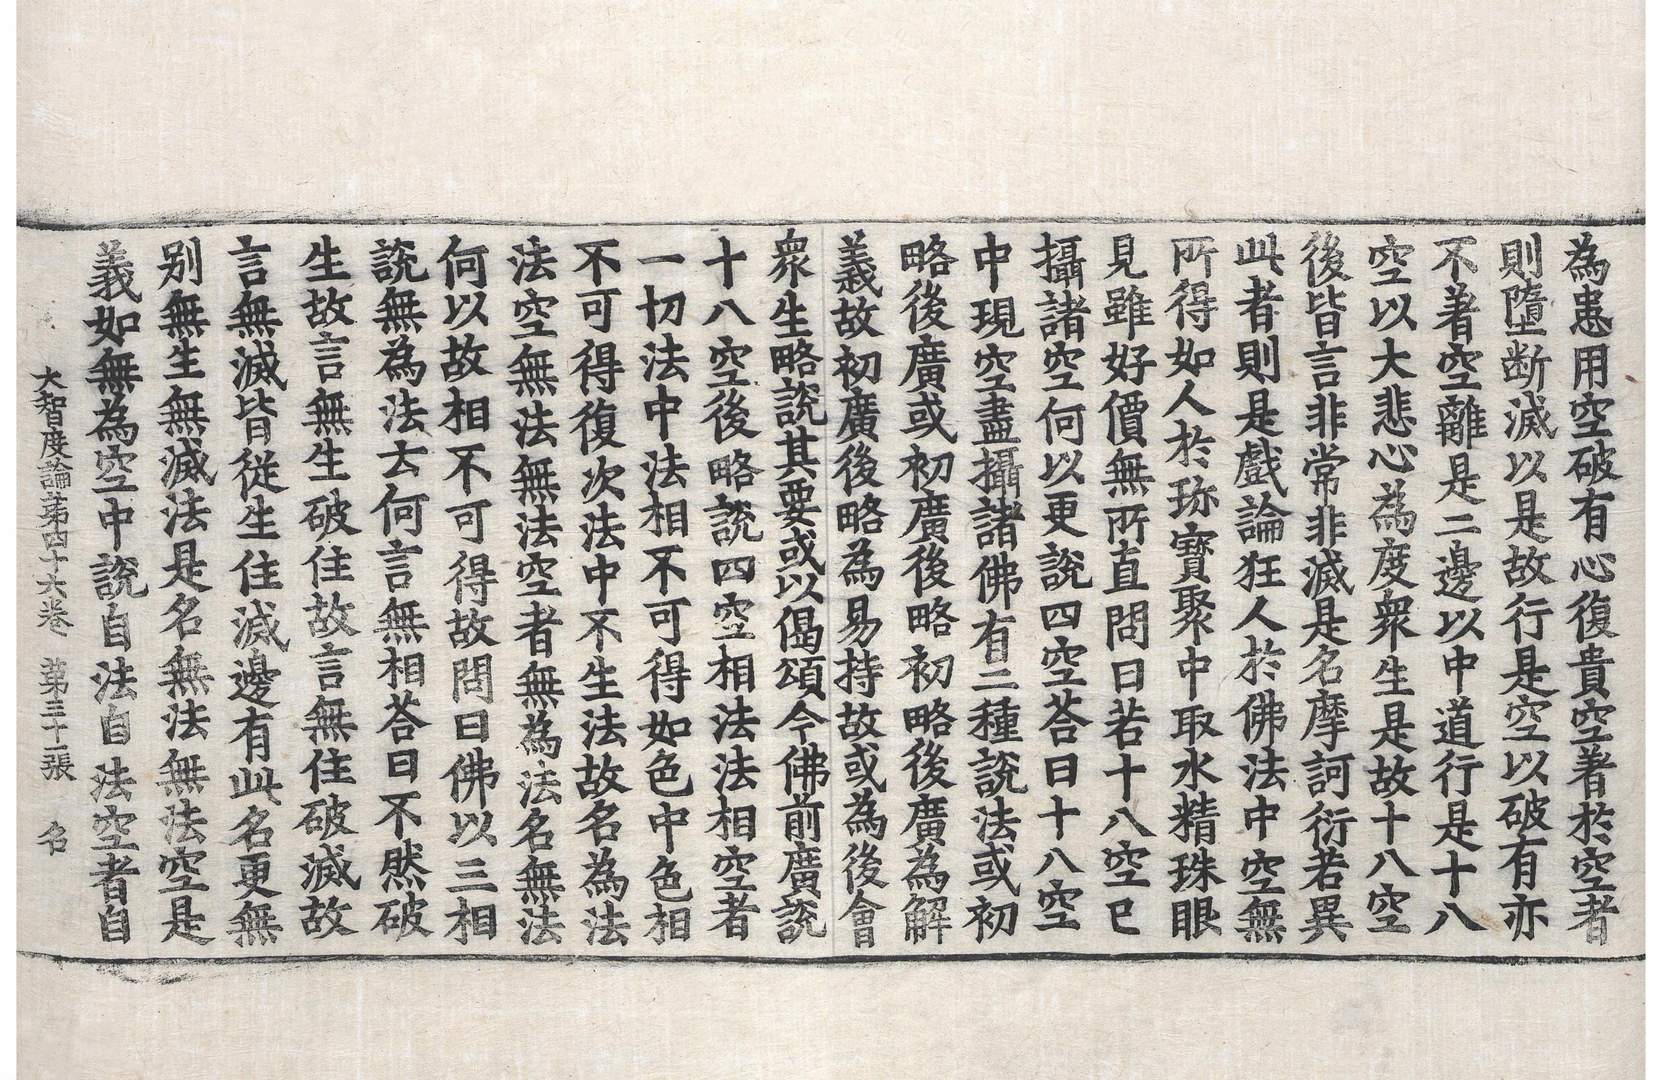 為患用空破有心復貴空著於空者
則墮断滅以是故行是空以破有亦
不著空離是二邊以中道行是十八
空以大悲心為度衆生是故十八空
後皆言非常非滅是名摩訶衍若異
此者則是戲論狂人於佛法中空無
所得如人於珎寶聚中取水精珠眼
見雖好價無所直問曰若十八空已
攝諸空何以更說四空荅曰十八空
中現空盡攝諸佛有二種說法或初
略後廣或初廣後略初略後廣為解
義故初廣後略為易持故或為後會
衆生略說其要或以偈頌今佛前廣說
十八空後略說四空相法法相空者
一切法中法相不可得如色中色相
不可得復次法中不生法故名為法
法空無法無法空者無為法名無法
何以故相不可得故問曰佛以三相
說無為法去何言無相荅曰不然破
生故言無生破住故言無住破滅故
言無滅皆從生住滅邊有此名更無
別無生無滅法是名無法無法空是
義如無為空中說自法自法空者自
大智度論第四十六卷 第三十一張 名